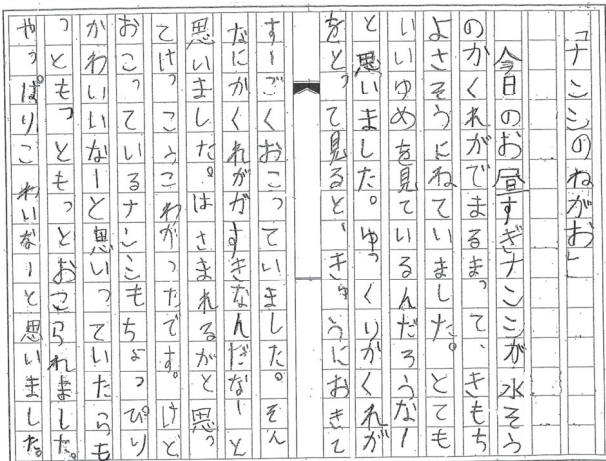 「ナンシのねがお」
今日のお昼すぎナンシが水そう
のかくれがでまるまって、きもち
よさそうにねていました。とても
いいゆめを見ているんだろうなー
と思いました。ゆっくりかくれが
をとって見ると、きゅうにおきて
すーごくおこっていました。そん
なにかくれががすきなんだなーと
思いました。はさまれるかと思っ
てけっこうこわかったです。けど
おこっているナンシもちょっぴり
かわいいなーと思いっていたらも
っともっともっとおこられました。
やっぱりこわいなーと思いました。